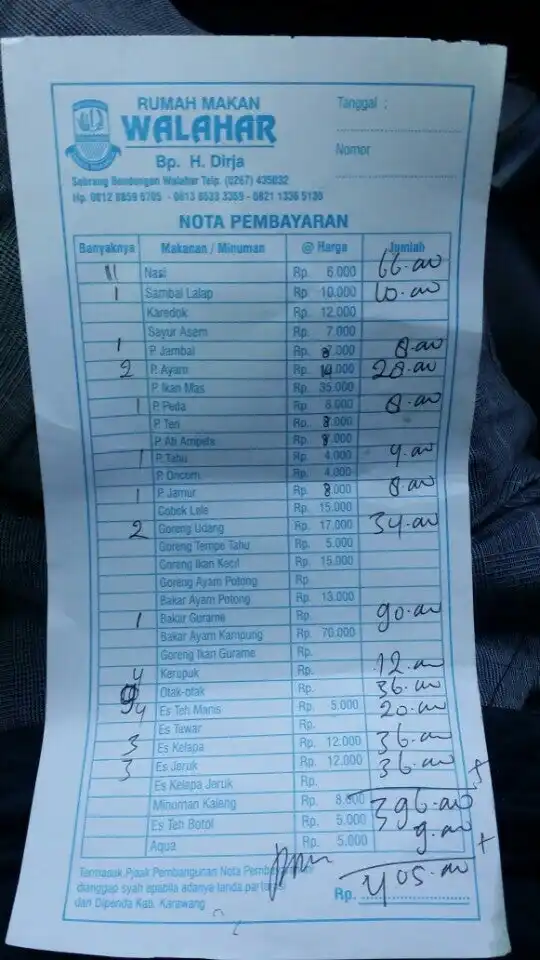 RUMAH MAKAN
WALAHAR
Bp. H. Dirja
Sebrang Bendongan Walahar Telp. (0267) 435032
Hp. 0812 8859 6705 - 0813 8533 3355 - 0821 1336 5136
Tanggal :
Nomor
NOTA PEMBAYARAN
Banyaknya Makanan / Minuman @ Harga Jumlah
11 Nasi Rp. 6.000 66.00
1 Sambal Lalap Rp. 10.000 10.00
Karedok Rp. 12.000
Sayur Asem Rp. 7.000
1 P. Jambal Rp. 8.000 8.00
2 P. Ayam Rp. 14.000 28.00
P. Ikan Mas Rp. 35.000
1 P. Peda Rp. 8.000 8.00
P. Teri Rp. 8.000
P. Ati Ampela Rp. 8.000
1 P. Tahu Rp. 4.000 4.00
P. Oncom Rp. 4.000
1 P. Jamur Rp. 8.000 8.00
Gobek Lele Rp. 15.000
2 Goreng Udang Rp. 17.000 34.00
Goreng Tempe Tahu Rp. 5.000
Goreng Ikan Kecil Rp. 15.000
Goreng Ayam Potong Rp.
Bakar Ayam Potong Rp. 13.000
1 Bakar Gurame Rp. 90.00
Bakar Ayam Kampung Rp. 70.000
Goreng Ikan Gurame Rp.
4 Kerupuk Rp. 12.00
9 Otak-otak Rp. 36.00
4 Es Teh Manis Rp. 5.000 20.00
Es Tawar Rp.
3 Es Kelapa Rp. 12.000 36.00
3 Es Jeruk Rp. 12.000 36.00
Es Kelapa Jeruk Rp. +
Minoman Kaleng Rp. 8.000 396.00
Es Teh Botol Rp. 5.000 9.00
Aqua Rp. 5.000 +
Termasuk Pjaak Pembangunan Nota Pembayaran
dianggap syah apabila adanya tanda
dari Dipenda Kab. Karawang
Rp. 405.00